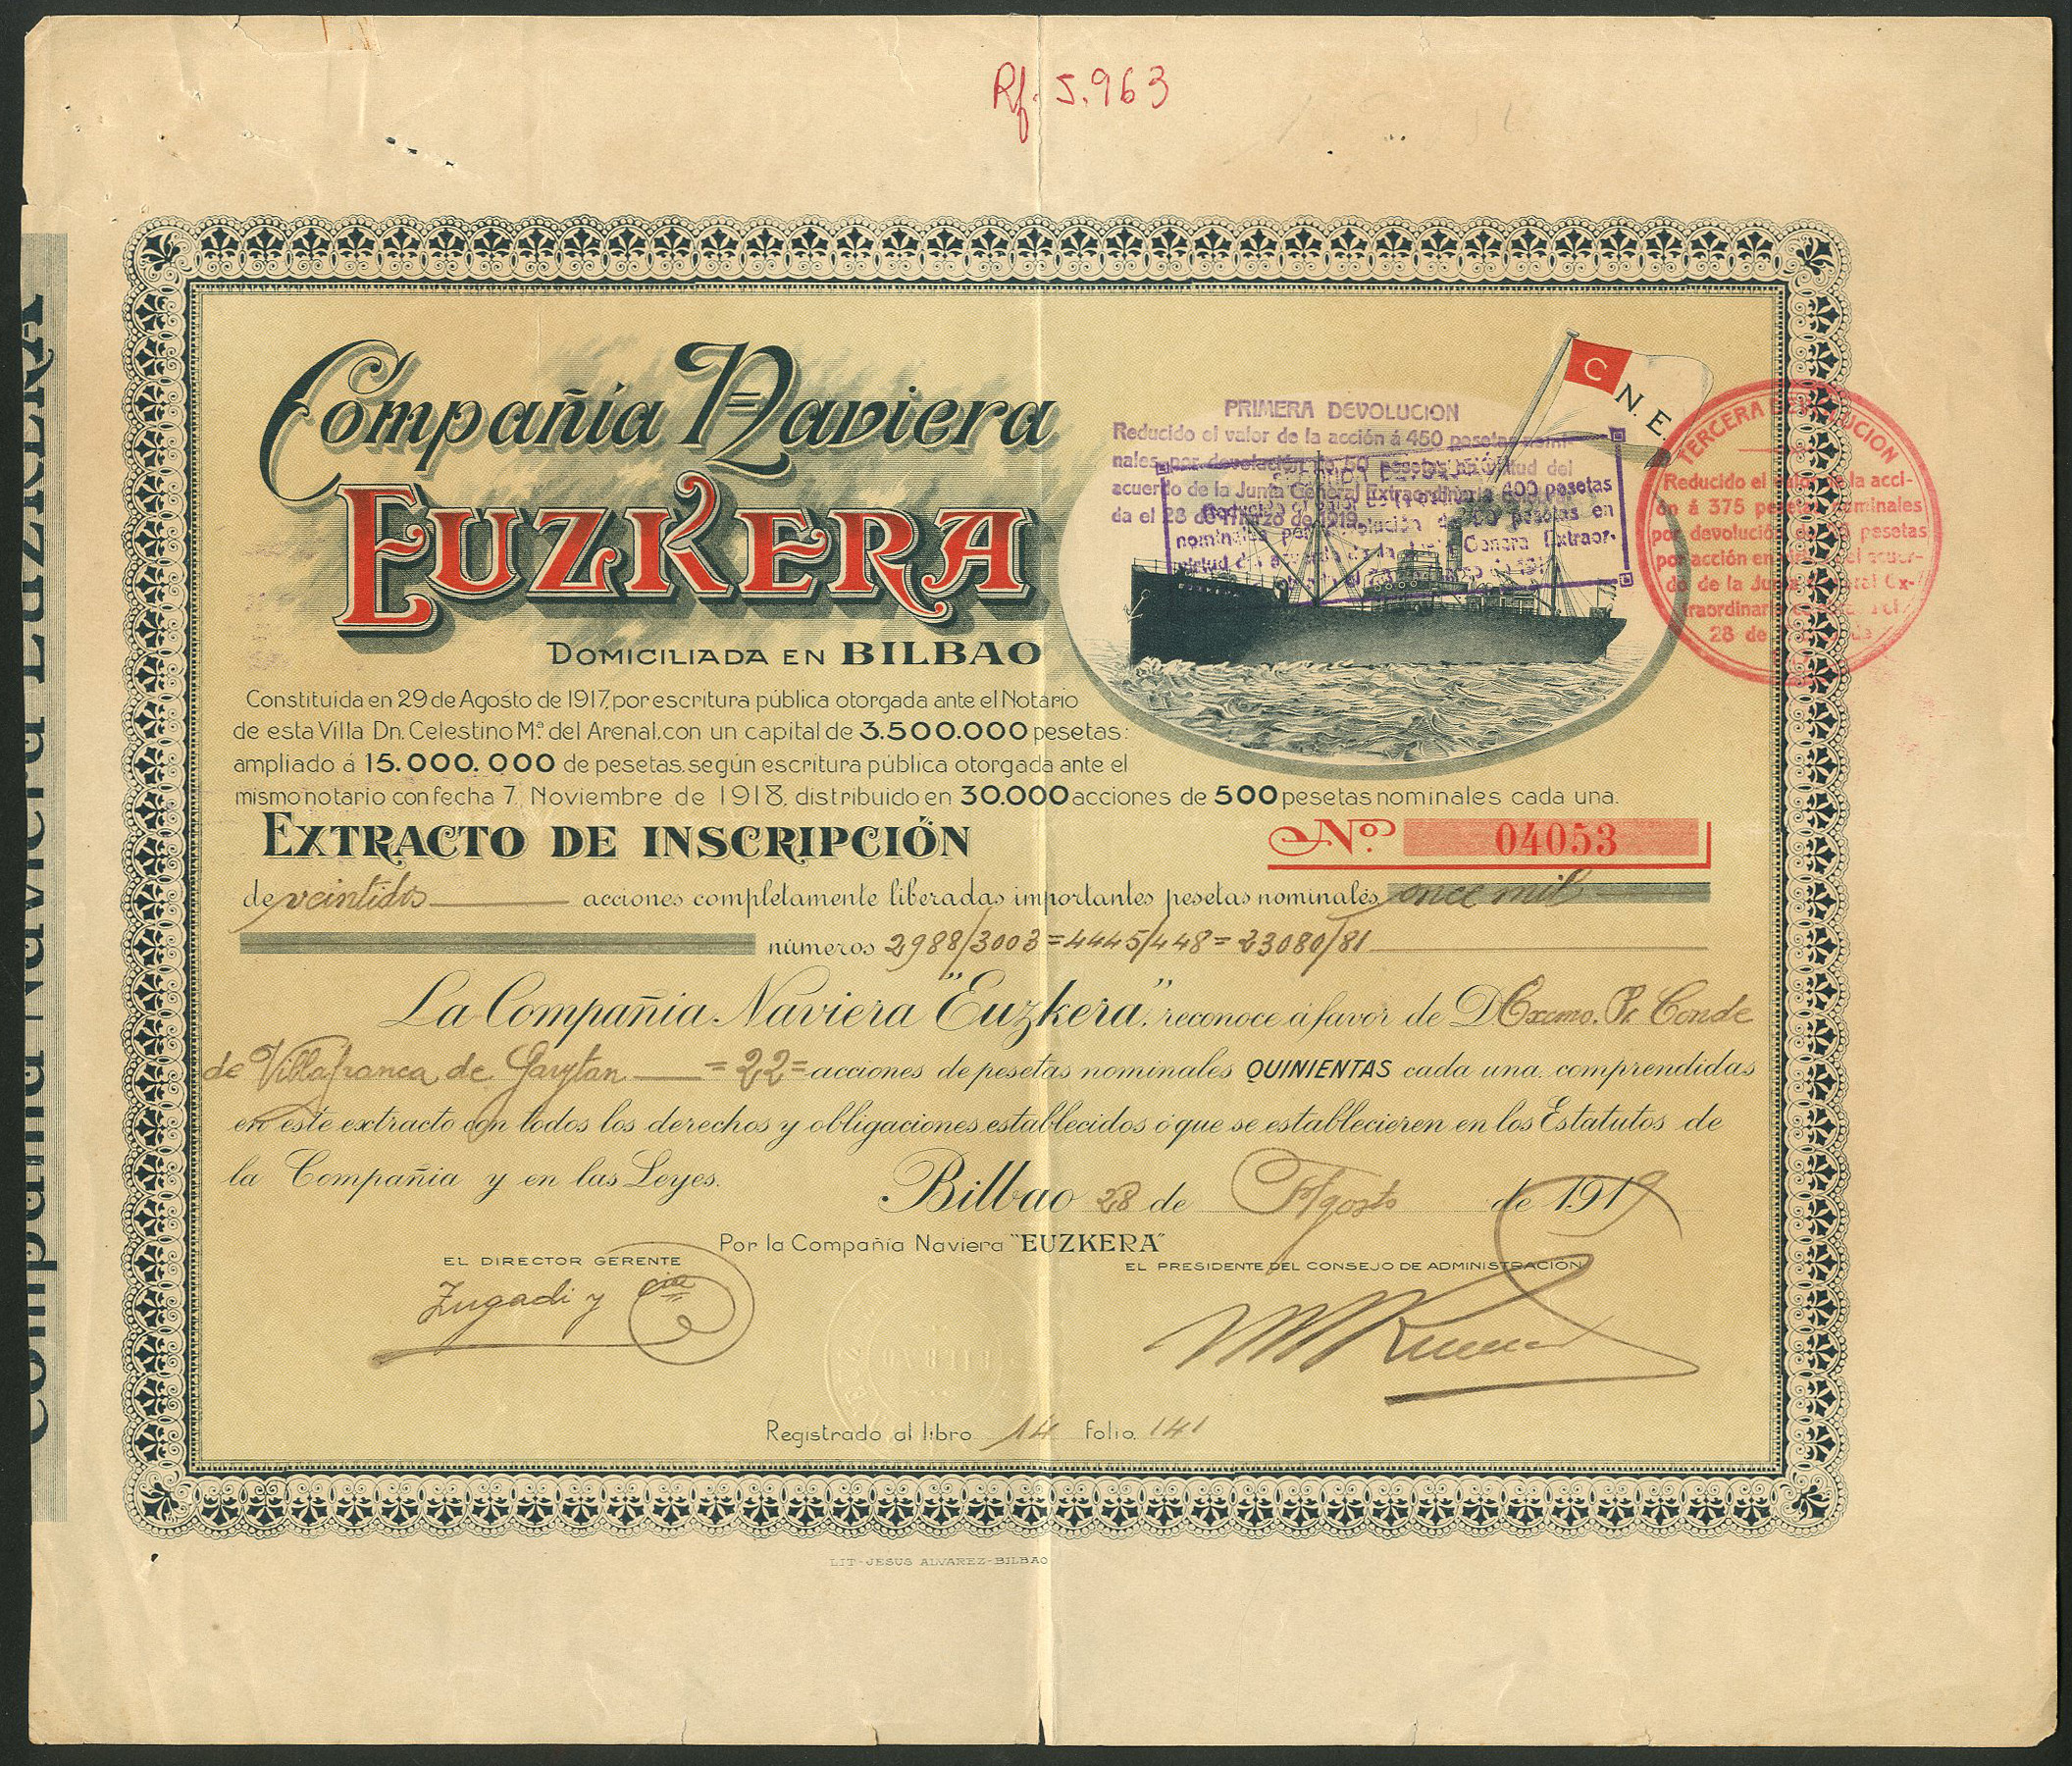 Rf. 5.963
Compañía Naviera
EUZKERA
DOMICILIADA EN BILBAO
C N. E.
PRIMERA DEVOLUCION
Reducido el valor de la acción á 450 pesetas nomi-
nales por devolución de 50 pesetas en virtud del
acuerdo de la Junta General Extraordinaria
da el 28 de Marzo de 1919
400 pesetas
nominales por devolución de 50 pesetas en
virtud del acuerdo de la Junta General Extraor-
TERCERA DEVOLUCION
Reducido el valor de la acci-
ón á 375 pesetas nominales
por devolución de pesetas
por acción en virtud del acuer-
do de la Junta General Ex-
traordinaria
28 de
Constituida en 29 de Agosto de 1917, por escritura pública otorgada ante el Notario
de esta Villa Dn. Celestino Mª. del Arenal, con un capital de 3.500.000 pesetas:
ampliado á 15.000.000 de pesetas, según escritura pública otorgada ante el
mismo notario con fecha 7, Noviembre de 1918, distribuido en 30.000 acciones de 500 pesetas nominales cada una.
EXTRACTO DE INSCRIPCIÓN
Nº. 04053
de veintidos acciones completamente liberadas importantes pesetas nominales once mil
números 2988/3003=4445/448=23080/81
La Compañia Naviera "Euzkera", reconoce á favor de D Excmo. Sr. Conde
de Villafranca de Gaytan =22= acciones de pesetas nominales QUINIENTAS cada una, comprendidas
en este extracto con todos los derechos y obligaciones establecidos ó que se establecieren en los Estatutos de
la Compañia y en las Leyes.
Bilbao 28 de Agosto de 1919
Por la Compañia Naviera "EUZKERA"
EL DIRECTOR GERENTE
EL PRESIDENTE DEL CONSEJO DE ADMINISTRACIÓN
Zugadi y Cia
Registrado al libro 14 folio. 141
LIT-JESUS ALVAREZ-BILBAO
Compañia Naviera EUZKERA